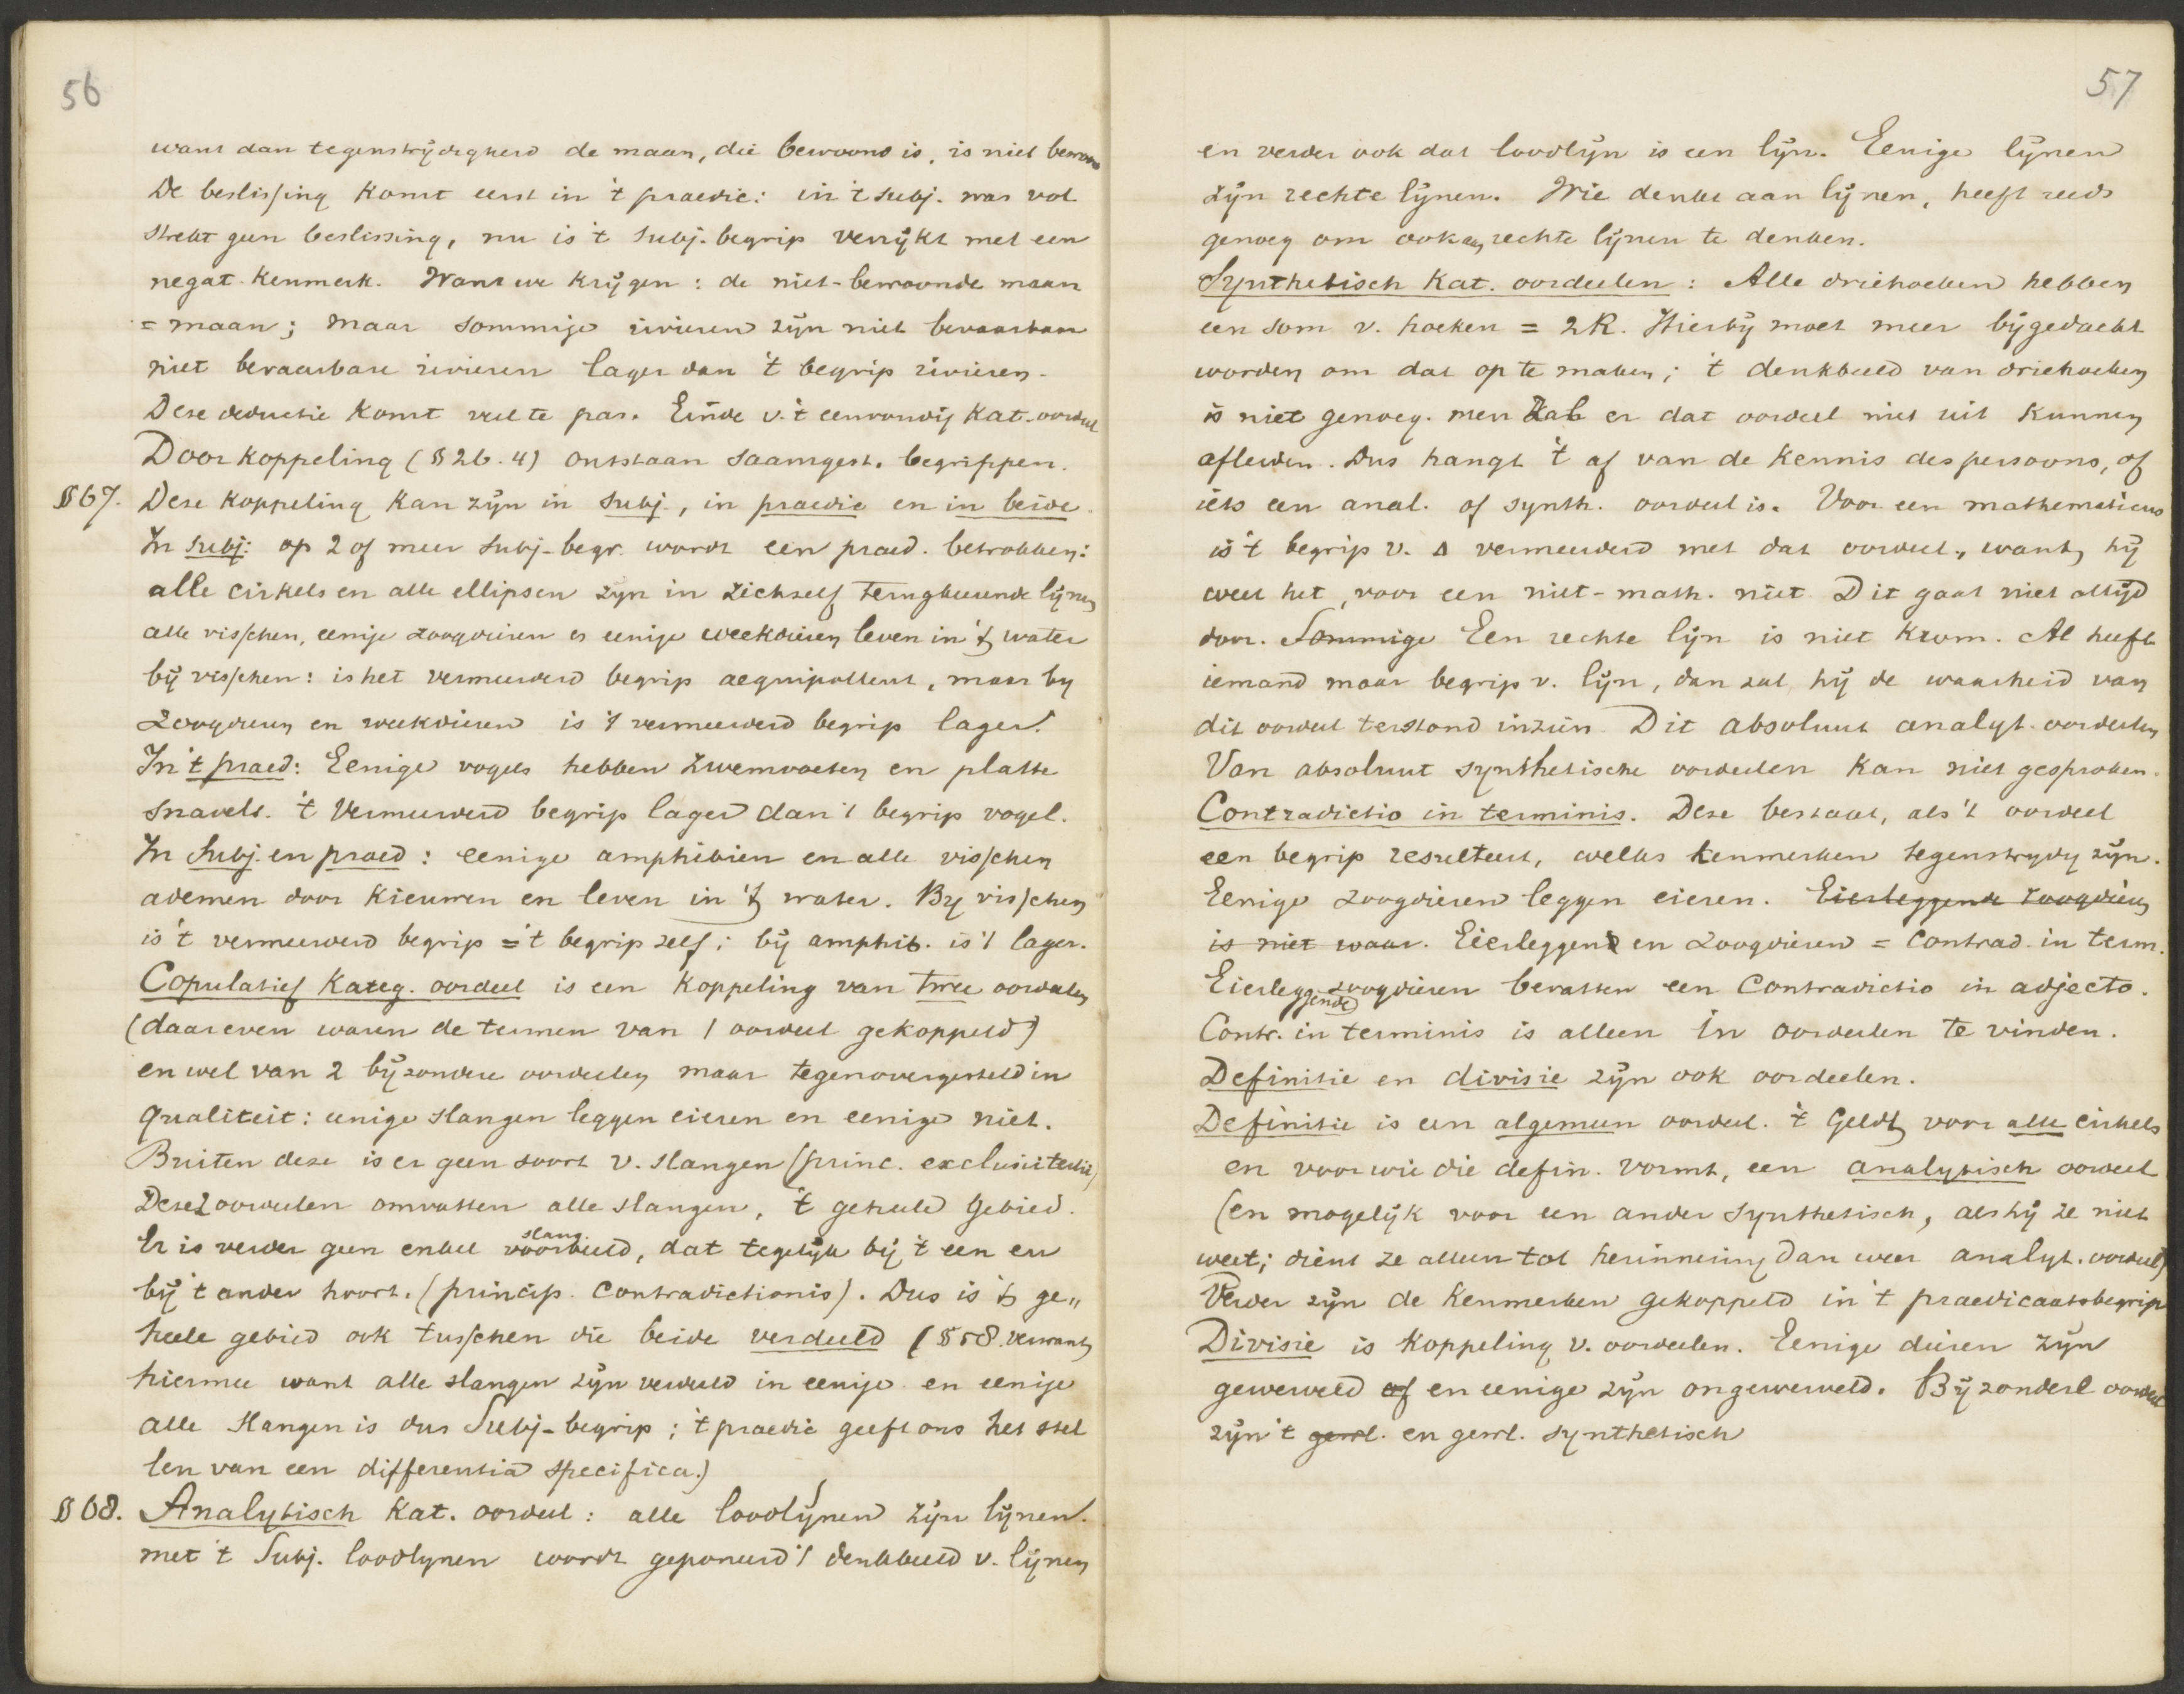 56
want dan tegenstrijdigheid de maan, die bewoond is, is niet bewoond
De beslissing komt eerst in 't praedic: in 't subj. was vol
strekt geen beslissing, nu is 't subj. begrip verrijkt met een
negat. kenmerk. Want we krijgen: de niet-bewoonde maan
= maan; maar sommige rivieren zijn niet bevaarbaar
niet bevaarbare rivieren lager dan 't begrip rivieren.
Deze deductie komt veel te pas. Einde v. 't eenvoudig kat. oordeel
Door koppeling (§ 26.4) ontstaan saamgest. begrippen.
§ 67. Deze koppeling kan zijn in subj., in praedic en in beide.
In subj: op 2 of meer subj-begr. wordt een praed. betrokken:
alle cirkels en alle ellipsen zijn in zichzelf terugkeerende lijnen
alle visschen, eenige zoogdieren es eenige weekdieren leven in 't water
bij visschen: is het vermeerderd begrip aequipollent, maar by
zoogdieren en weekdieren is 't vermeerderd begrip lager.
In 't praed: Eenige vogels hebben zwemvoeten en platte
snavels. 't Vermeerderd begrip lager dan 't begrip vogel.
In Subj. en praed: eenige amphibien en alle visschen
ademen door kieuwen en leven in 't water. By visschen
is 't vermeerderd begrip = 't begrip zelf; bij amphib. is 't lager.
Copulatief Kateg. oordeel is een koppeling van twee oordeelen
(daareven waren de termen van 1 oordeel gekoppeld)
en wel van 2 bijzondere oordeelen maar tegenovergesteld in
qualiteit: eenige slangen leggen eieren en eenige niet.
Buiten deze is er geen soort v. slangen (princ. exclusi tertii)
Deze 2 oordeelen omvatten alle slangen, 't geheele gebied.
Er is verder geen enkel slang voorbeeld, dat tegelijk bij 't een en
bij 't ander hoort. (princip. contradictionis). Dus is 't ge„
heele gebied ook tusschen die beide verdeeld (§ 58. verwant
hiermee want alle slangen zijn verdeeld in eenige en eenige
alle slangen is dus Subj-begrip; 't praedic geeft ons het stel
len van een differentia specifica.)
§ 68. Analytisch Kat. oordeel: alle loodlijnen zijn lijnen.
met 't Subj. loodlynen wordt geponeerd 't denkbeeld v. lijnen
57
en verder ook dat loodlijn is een lijn. Eenige lijnen
zijn rechte lijnen. Wie denkt aan lijnen, heeft reeds
genoeg om ook aan rechte lijnen te denken.
Synthetisch Kat. oordeelen: Alle driehoeken hebben
een som v. hoeken = 2R. Hierbij moet meer bijgedacht
worden om dat op te maken; 't denkbeeld van driehoeken
is niet genoeg. men zal er dat oordeel niet uit kunnen
afleiden. Dus hangt 't af van de kennis des persoons, of
iets een anal. of synth. oordeel is. Voor een mathematicus
is 't begrip v. Δ vermeerderd met dat oordeel, want hij
weet het, voor een niet-math. niet. Dit gaat niet altijd
door. Sommige Een rechte lijn is niet krom. Al heeft
iemand maar begrip v. lijn, dan zal hij de waarheid van
dit oordeel terstond inzien. Dit absoluut analyt. oordeelen
Van absoluut synthetische oordeelen kan niet gesproken.
Contradictio in terminis. Deze bestaat, als 't oordeel
een begrip resulteert, welks kenmerken tegenstrydig zijn.
Eenige zoogdieren leggen eieren. Eierleggende zoogdieren
is niet waar. Eierleggend en zoogdieren = contrad. in term.
Eierleggende zoogdieren bevatten een Contradictio in adjecto.
Contr. in terminis is alleen in oordeelen te vinden.
Definitie en divisie zijn ook oordeelen.
Definitie is een algemeen oordeel. 't Geldt voor alle cirkels
en voor wie die defin. vormt, een analytisch oordeel
(en mogelijk voor een ander synthetisch, als hij ze niet
weet; dient ze alleen tot herinnering dan weer analyt. oordeel)
Verder zijn de kenmerken gekoppeld in 't praedicaatsbegrip
Divisie is koppeling v. oordeelen. Eenige dieren zijn
gewerveld of en eenige zijn ongewerveld. Bijzondere oordeel
zijn 't gewl. en gewl. synthetisch